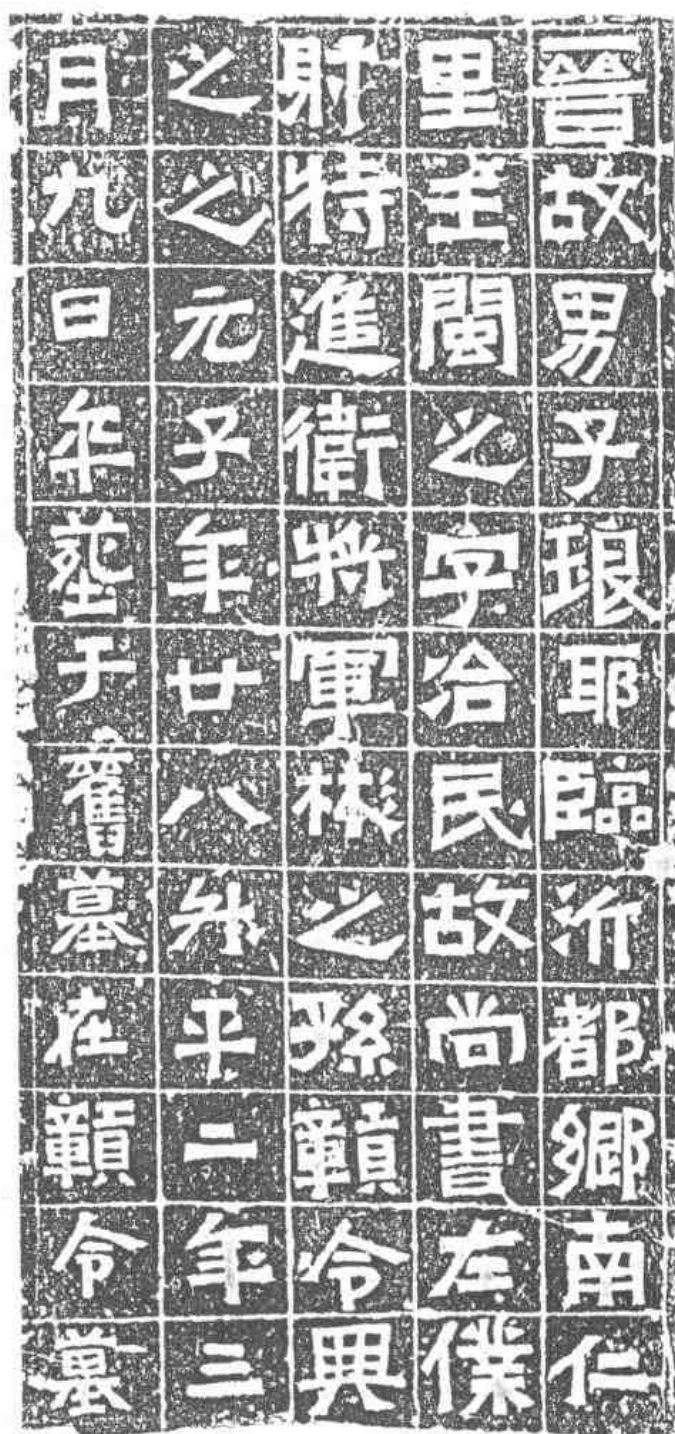 晉故男子琅耶臨沂都鄉南仁
里王閩之字冶民故尚書左僕
射特進衛將軍彬之孫贛令興
之之元子年廿八升平二年三
月九日卒塟于舊墓在贛令墓